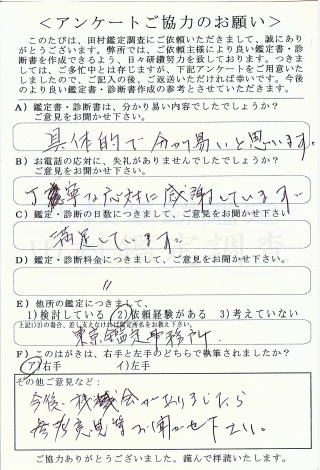 ＜アンケートご協力のお願い＞
このたびは、田村鑑定調査にご依頼いただきまして、誠にあり
がとうございます。弊所では、ご依頼主様により良い鑑定書・診
断書を作成できるよう、日々研鑽努力を致しております。つきま
しては、ご多忙中とは存じますが、下記アンケートをご用意いた
しましたので、ご記入の後、ご返送いただければ幸いです。今後
のより良い鑑定書・診断書作成の参考とさせていただきます。
A）鑑定書・診断書は、分かり易い内容でしたでしょうか？
ご意見をお聞かせ下さい。
具体的で分かり易いと思います。
B）お電話の応対に、失礼がありませんでしたでしょうか？
ご意見をお聞かせ下さい。
丁寧な応対に感謝しています。
C）鑑定・診断の日数につきまして、ご意見をお聞かせ下さい。
満足しています。
D）鑑定・診断料金につきまして、ご意見をお聞かせ下さい。
〃
E）他所の鑑定につきまして、
1)検討している 2)依頼経験がある 3)考えていない
上記1)2)の場合、差し支えなければ鑑定所名をお教え下さい。
東京鑑定事務所.
F）このはがきは、右手と左手のどちらで執筆されましたか？
ア)右手 イ)左手
その他ご意見など：
今後、機会がありましたら
参考意見等お聞かせ下さい。
ご協力ありがとうございました。謹んで拝読いたします。